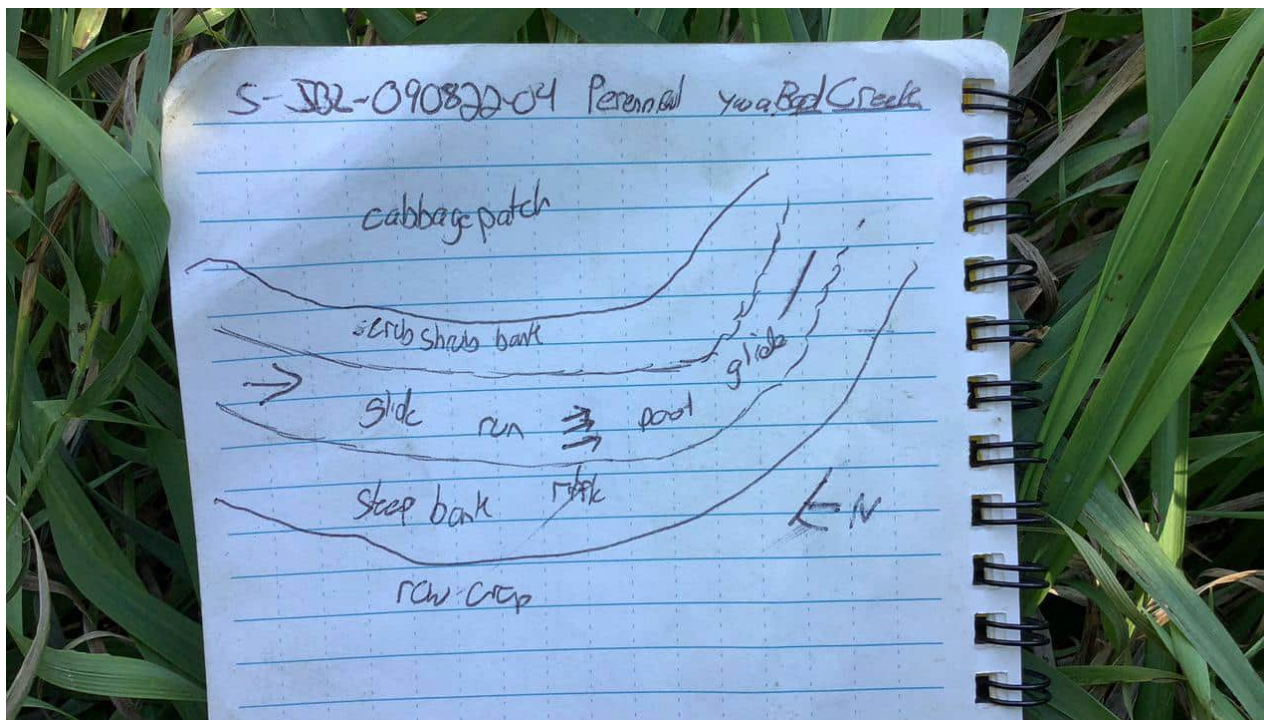 S-JBL-090822-04 Perennial Bad Creek
cabbage patch
scrub shrub bank
glide
glide run pool
steep bank riffle
N
row crop